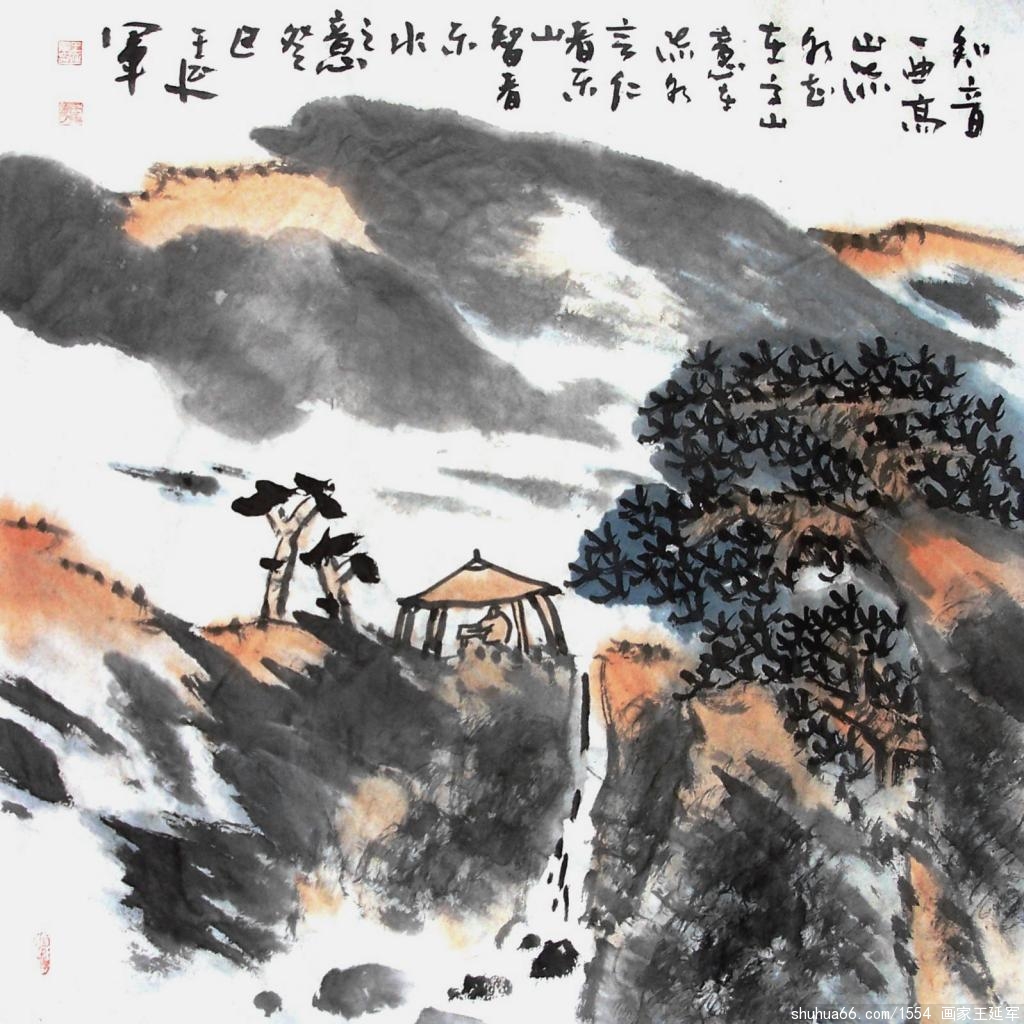 知音
一曲高
山流
水志
在高山
意在
流水
言仁
者乐
山
智者
乐
水
之意
癸
巳
王延
軍
shuhua66.com/1554 画家王延军